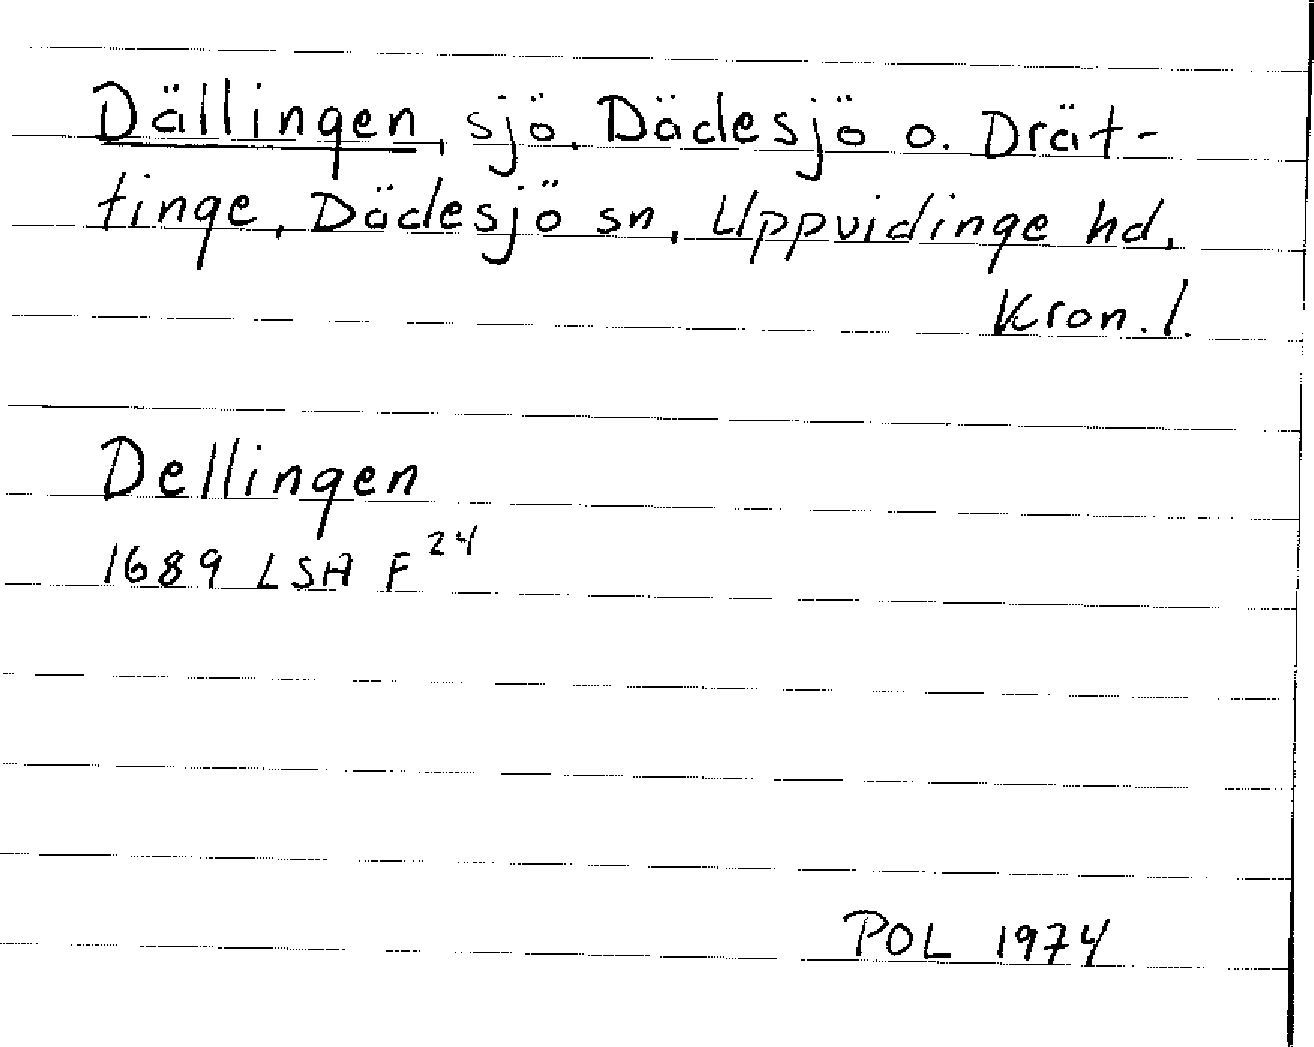 Dällingen, sjö, Dädesjö o. Drät-
tinge, Dädesjö sn, Uppvidinge hd,
Kron. l.
Dellingen
1689 LSA F 24
POL 1974